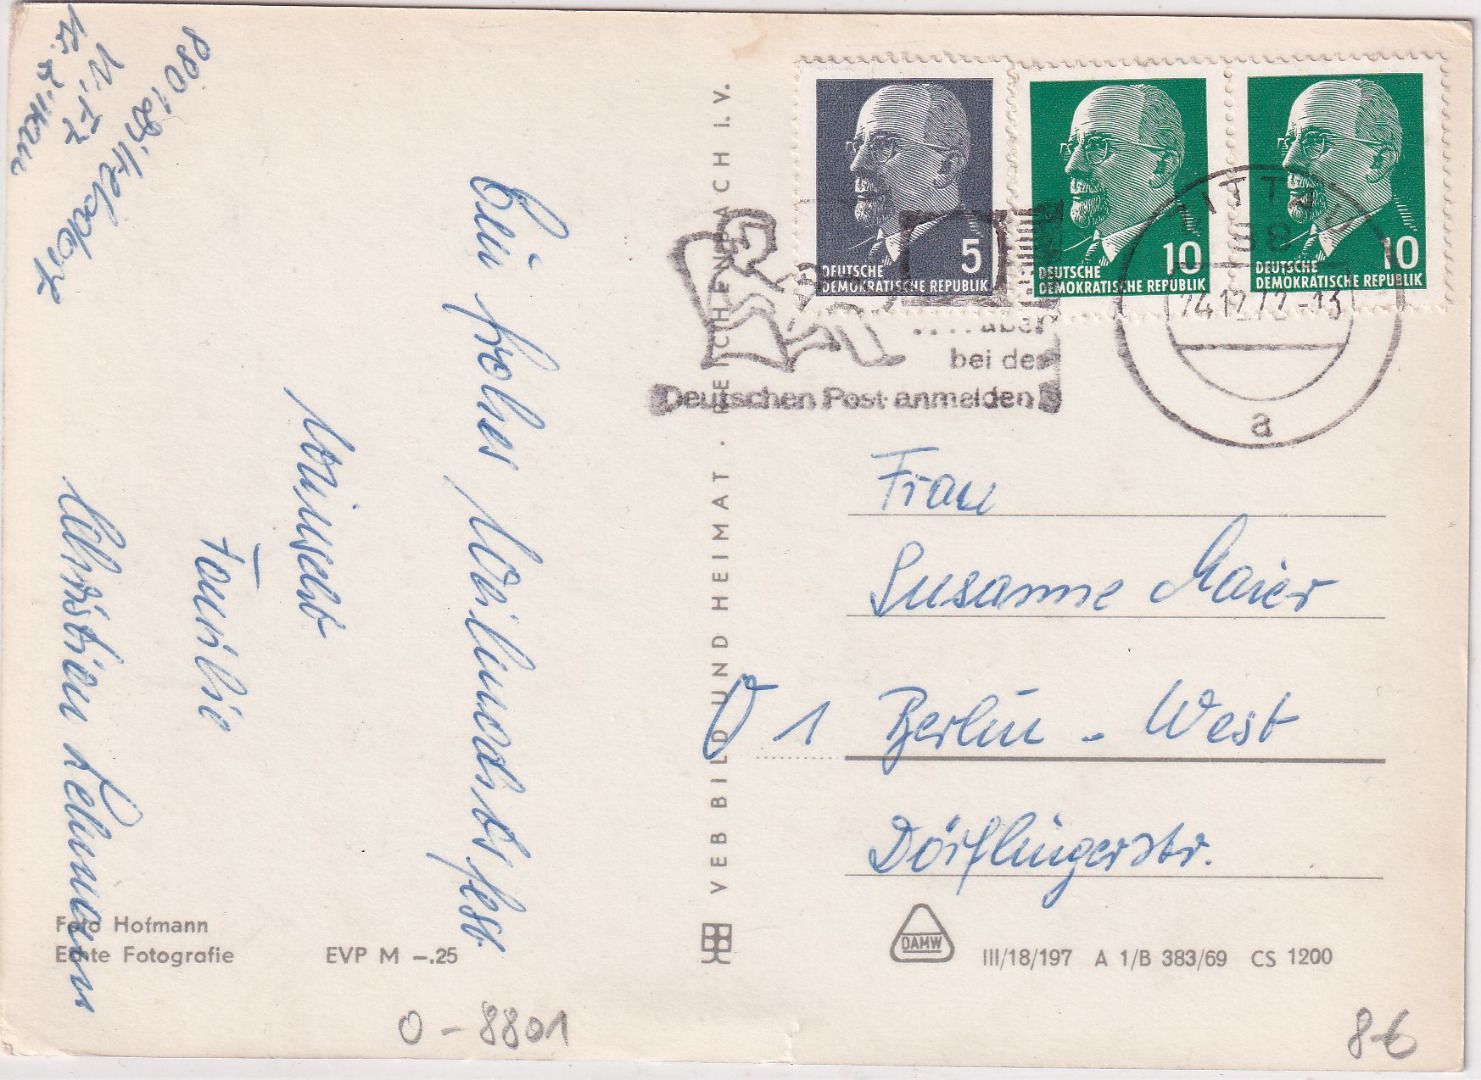 8801 Dittelsdorf
Nr. 57
Kr. Zittau
Ein frohes Weihnachtsfest
wünscht
Familie
Christian Lehmann
Foto Hofmann
Echte Fotografie
EVP M –.25
VEB BILD UND HEIMAT · REICHENBACH I. V.
5
DEUTSCHE
DEMOKRATISCHE REPUBLIK
10
DEUTSCHE
DEMOKRATISCHE REPUBLIK
10
DEUTSCHE
DEMOKRATISCHE REPUBLIK
.... aber
bei der
Deutschen Post anmelden
88
24.12.72-13
a
Frau
Susanne Maier
1 Berlin - West
Dörflingerstr.
DAMW
III/18/197 A 1/B 383/69 CS 1200
O-8801